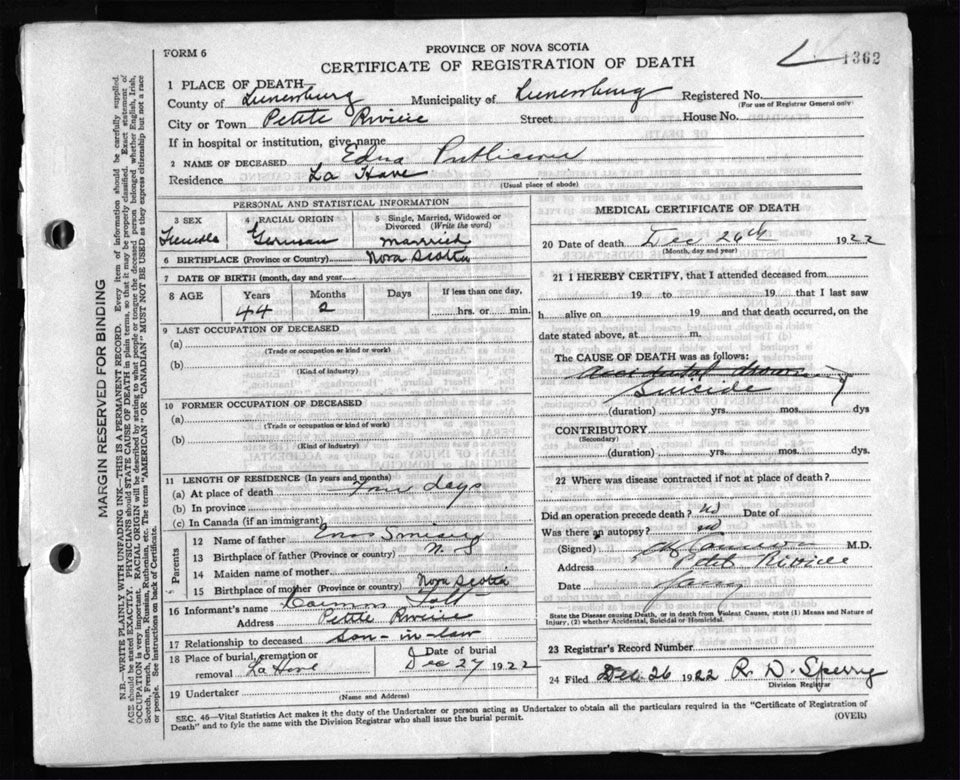 FORM 6
PROVINCE OF NOVA SCOTIA
CERTIFICATE OF REGISTRATION OF DEATH
1362
1 PLACE OF DEATH—
County of Lunenburg Municipality of Lunenburg Registered No.
(For use of Registrar General only)
City or Town Petite Riviere Street House No.
If in hospital or institution, give name
2 NAME OF DECEASED Edna Publicover
Residence La Have
(Usual place of abode)
PERSONAL AND STATISTICAL INFORMATION
3 SEX
Female
4 RACIAL ORIGIN
German
5 Single, Married, Widowed or Divorced (Write the word)
Married
6 BIRTHPLACE (Province or Country) Nova Scotia
7 DATE OF BIRTH (month, day and year)
8 AGE Years Months Days If less than one day,
44 2 hrs. or min.
9 LAST OCCUPATION OF DECEASED
(a)
(Trade or occupation or kind or work)
(b)
(Kind of industry)
10 FORMER OCCUPATION OF DECEASED
(a)
(Trade or occupation or kind or work)
(b)
(Kind of industry)
11 LENGTH OF RESIDENCE (In years and months)
(a) At place of death days
(b) In province
(c) In Canada (if an immigrant)
Parents
12 Name of father Enos
13 Birthplace of father (Province or country) N. S
14 Maiden name of mother
15 Birthplace of mother (Province or country) Nova Scotia
16 Informant's name
Address Petite Riviere
17 Relationship to deceased Son-in-law
18 Place of burial, cremation or removal La Have
Date of burial
Dec 27 1922
19 Undertaker
(Name and Address)
MEDICAL CERTIFICATE OF DEATH
20 Date of death Dec 26th 1922
(Month, day and year)
21 I HEREBY CERTIFY, that I attended deceased from
19 to 19 that I last saw
h alive on 19 and that death occurred, on the
date stated above, at m.
The CAUSE OF DEATH was as follows:
Accidental drowning
Suicide
(duration) yrs. mos. dys
CONTRIBUTORY
(Secondary)
(duration) yrs. mos. dys.
22 Where was disease contracted if not at place of death?
Did an operation precede death? no Date of
Was there an autopsy? no
(Signed) M.D.
Address Petite Riviere
Date
State the Disease causing Death, or in death from Violent Causes, state (1) Means and Nature of
Injury, (2) whether Accidental, Suicidal or Homicidal.
23 Registrar's Record Number
24 Filed Dec 26 1922 R. D. Sperry
Division Registrar
SEC. 46—Vital Statistics Act makes it the duty of the Undertaker or person acting as Undertaker to obtain all the particulars required in the "Certificate of Registration of
Death" and to fyle the same with the Division Registrar who shall issue the burial permit. (OVER)
MARGIN RESERVED FOR BINDING
N.B.—WRITE PLAINLY WITH UNFADING INK—THIS IS A PERMANENT RECORD. Every item of information should be carefully supplied.
AGE should be stated EXACTLY. PHYSICIANS should STATE CAUSE OF DEATH in plain terms, so that it may be properly classified. Exact statement of
OCCUPATION is very important. RACIAL ORIGIN will be described by stating to what people or tongue the deceased person belonged whether English, Irish,
Scotch, French, German, Russian, Ruthenian, etc. The terms "AMERICAN" OR "CANADIAN" MUST NOT BE USED as they express citizenship but not a race
or people. See instructions on back of Certificate.